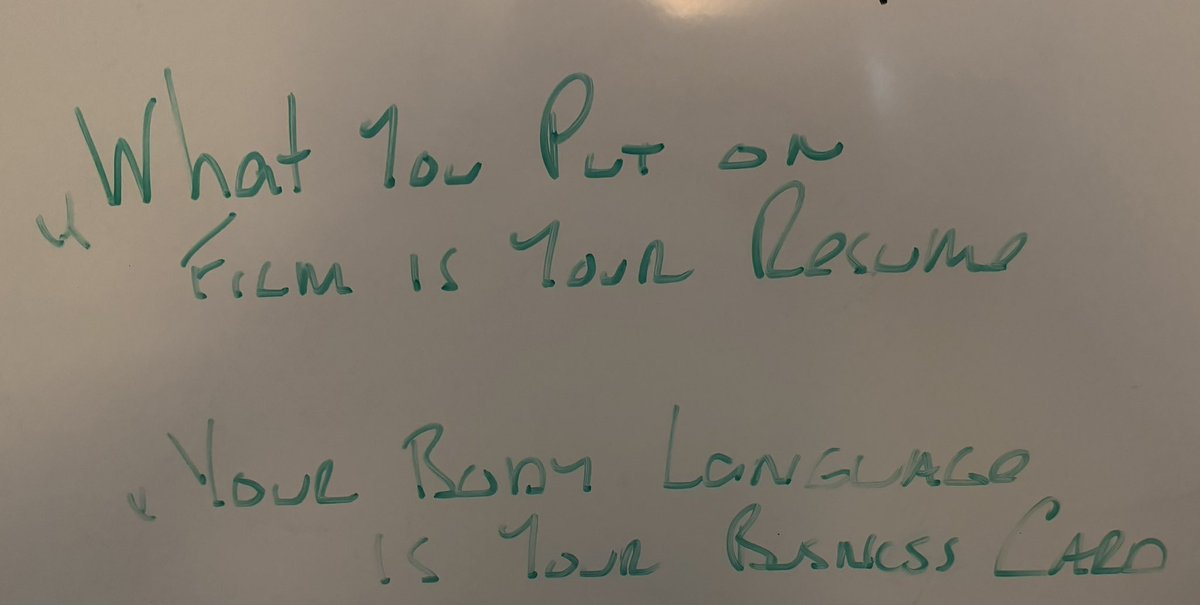 "What You Put on
Film is Your Resume
"Your Body Language
is Your Business Card